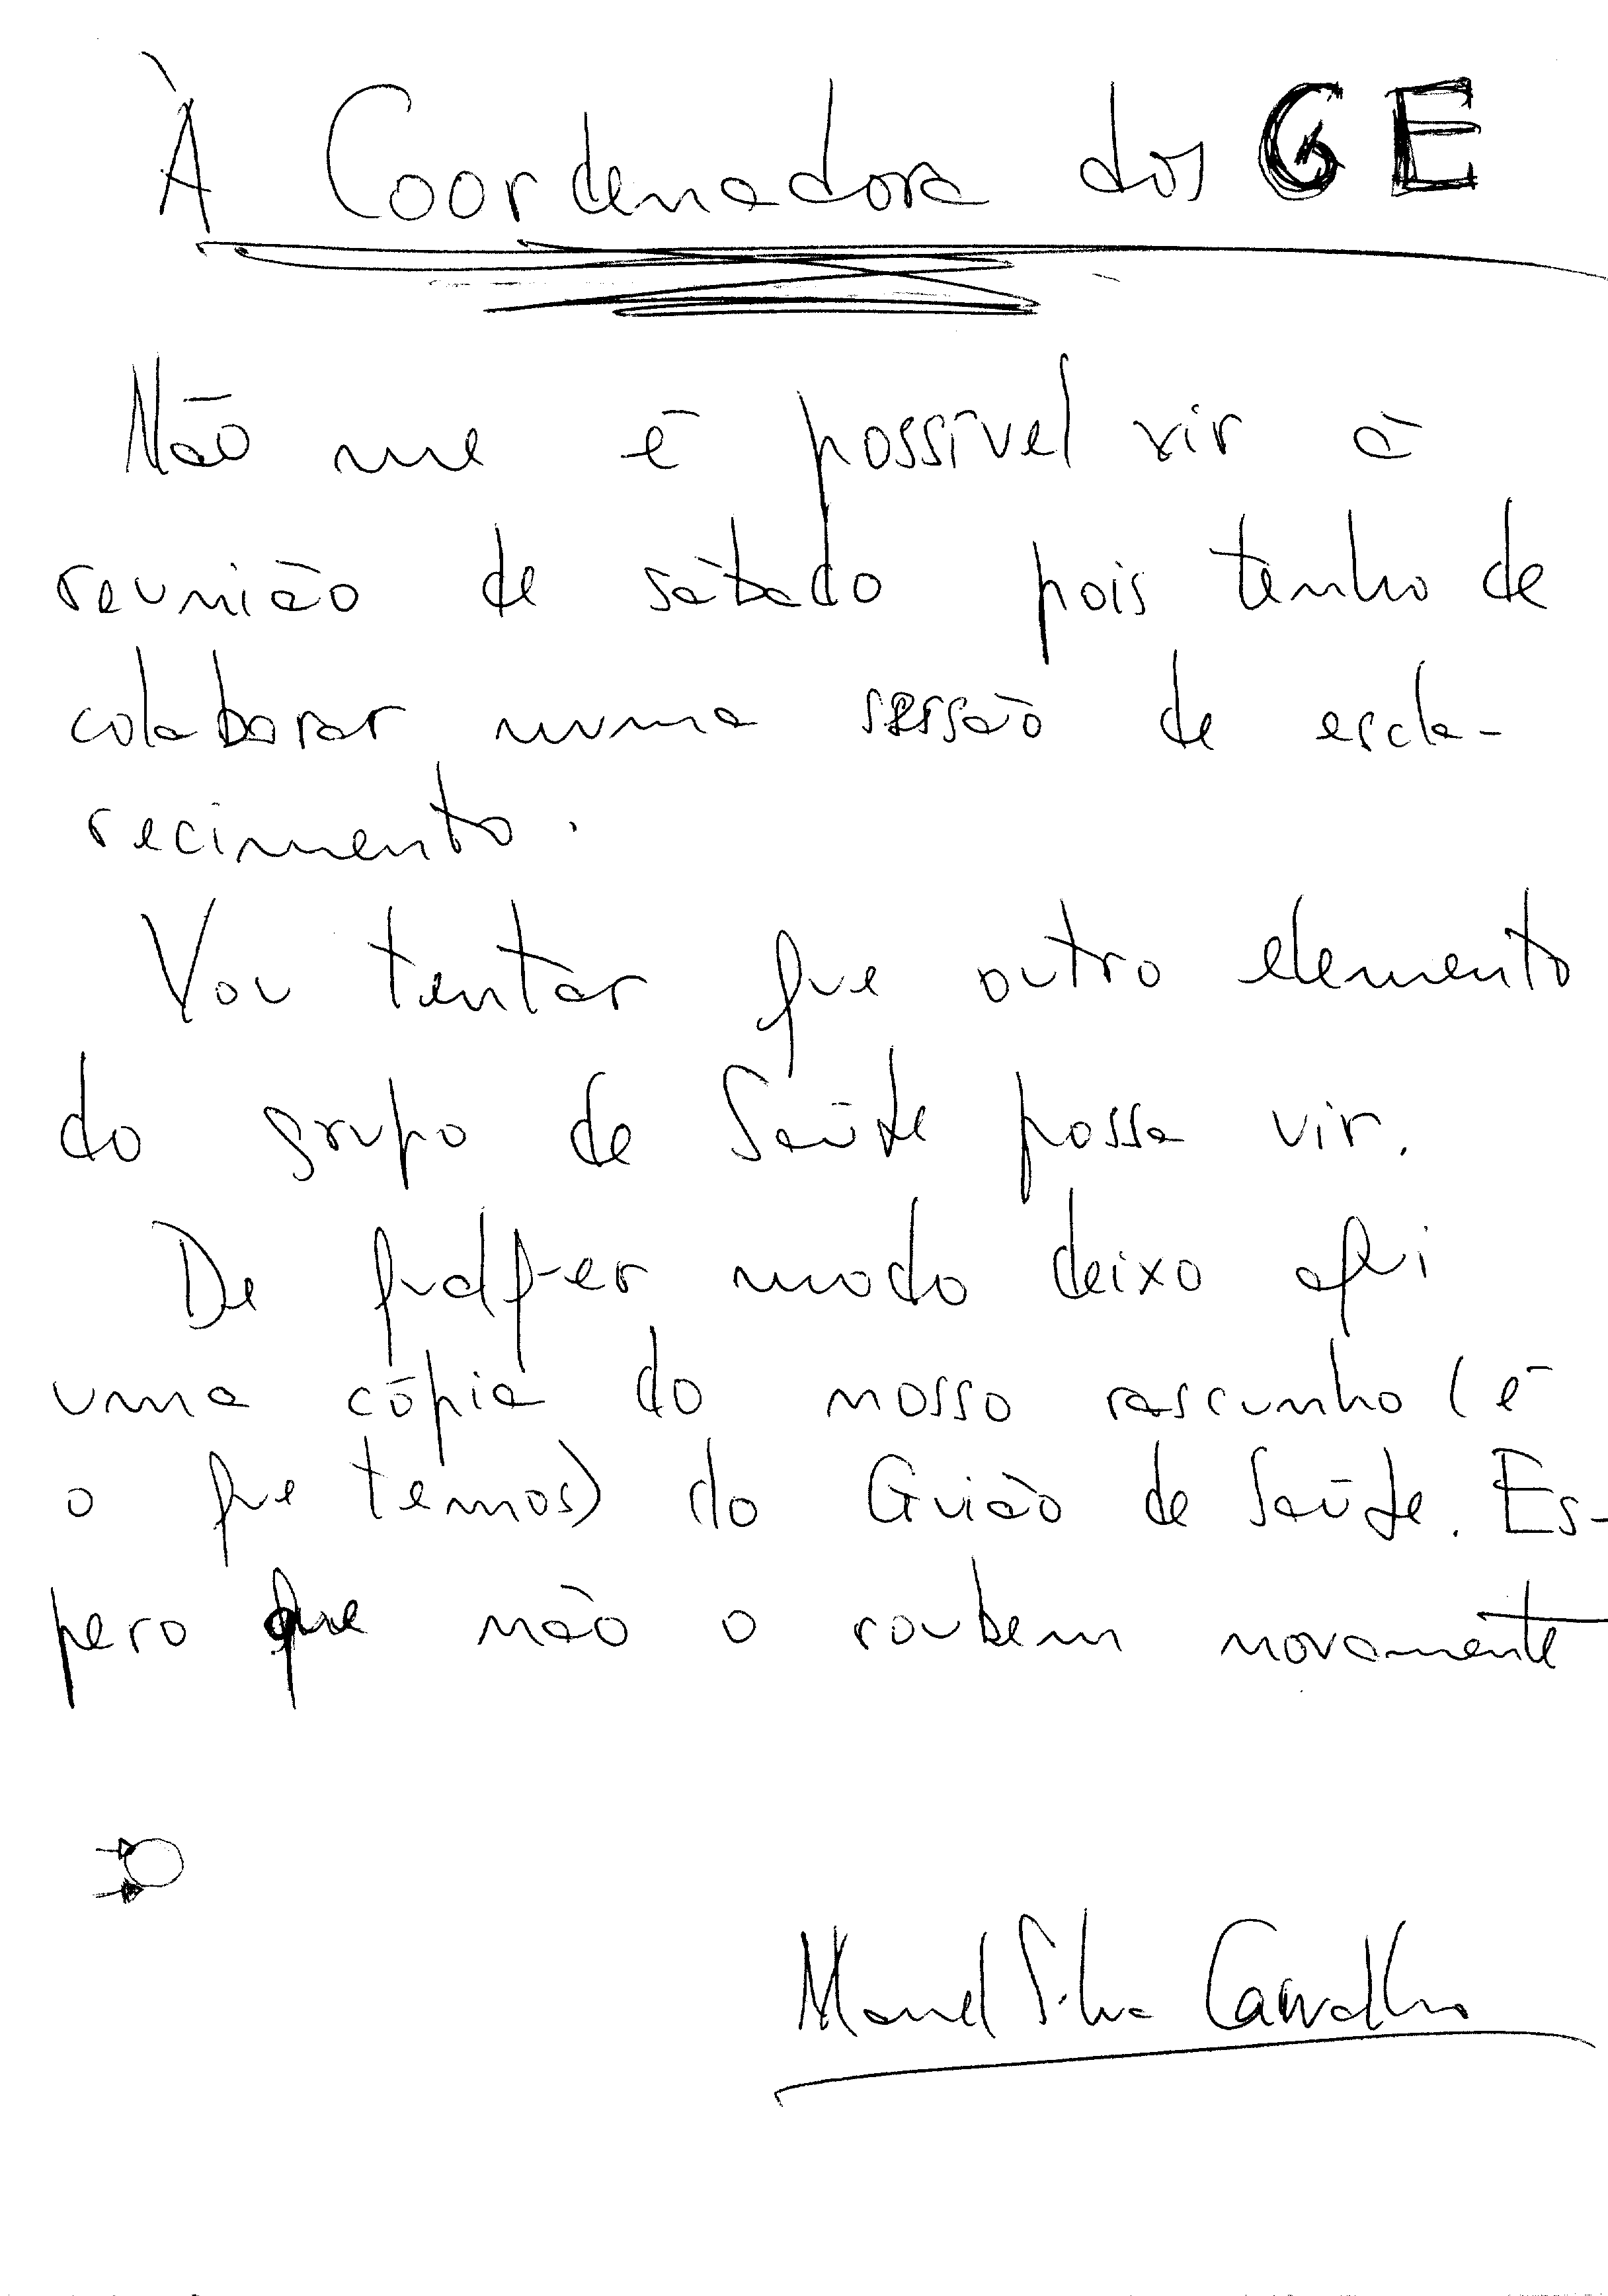 À Coordenadora dos GE
Não me é possível vir à
reunião de sábado pois tenho de
colaborar numa sessão de escla-
recimento.
Vou tentar que outro elemento
do grupo de Saúde possa vir.
De qualquer modo deixo aqui
uma cópia do nosso rascunho (é
o que temos) do Guião de Saúde. Es-
pero que não o roubem novamente
Manuel Silva Carvalho